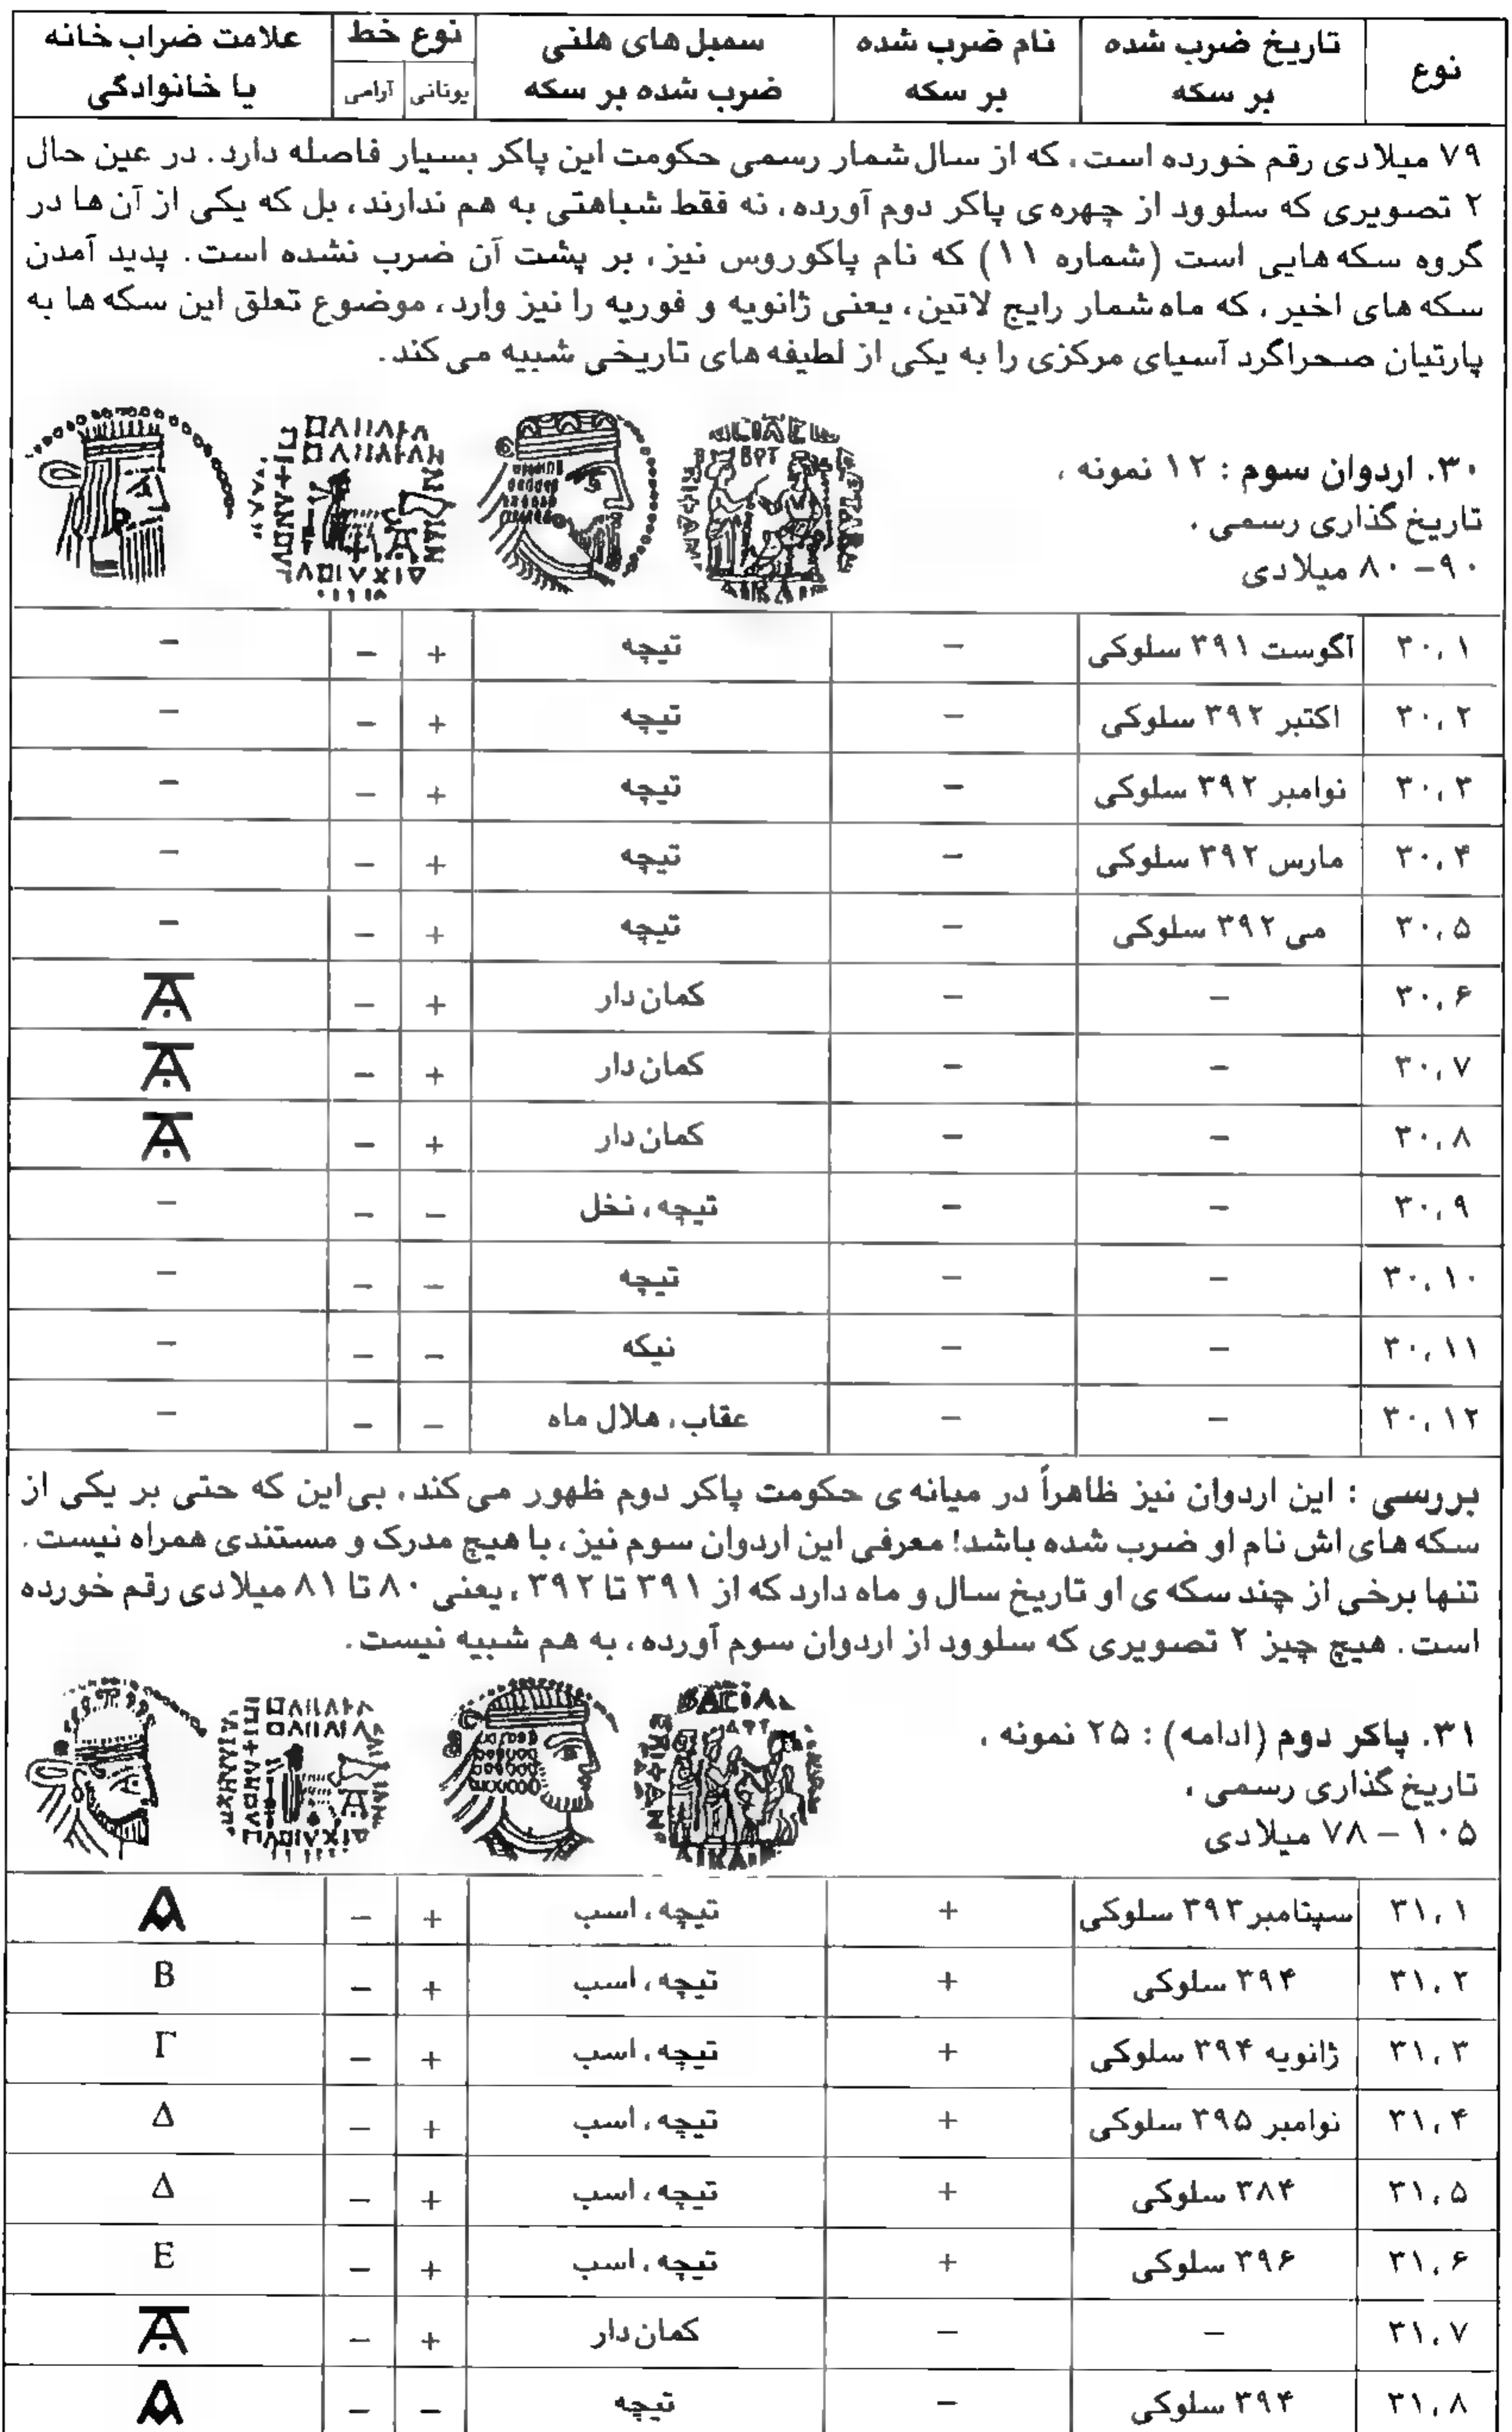 نوع | تاریخ ضرب شده بر سکه | نام ضرب شده بر سکه | سمبل های هلنی ضرب شده بر سکه | نوع خط: یونانی | نوع خط: آرامی | علامت ضراب خانه یا خانوادگی
۷۹ میلادی رقم خورده است، که از سال شمار رسمی حکومت این پاکر بسیار فاصله دارد. در عین حال
۲ تصویری که سلوود از چهره ی پاکر دوم آورده، نه فقط شباهتی به هم ندارند، بل که یکی از آن ها در
گروه سکه هایی است (شماره ۱۱) که نام پاکوروس نیز، بر پشت آن ضرب نشده است. پدید آمدن
سکه های اخیر، که ماه شمار رایج لاتین، یعنی ژانویه و فوریه را نیز وارد، موضوع تعلق این سکه ها به
پارتیان صحراگرد آسیای مرکزی را به یکی از لطیفه های تاریخی شبیه می کند.
۳۰. اردوان سوم : ۱۲ نمونه،
تاریخ گذاری رسمی،
۹۰- ۸۰ میلادی
۳۰،۱ | آگوست ۳۹۱ سلوکی | − | تیچه | + | − | −
۳۰،۲ | اکتبر ۳۹۲ سلوکی | − | تیچه | + | − | −
۳۰،۳ | نوامبر ۳۹۲ سلوکی | − | تیچه | + | − | −
۳۰،۴ | مارس ۳۹۲ سلوکی | − | تیچه | + | − | −
۳۰،۵ | می ۳۹۲ سلوکی | − | تیچه | + | − | −
۳۰،۶ | − | − | کمان دار | + | − |
۳۰،۷ | − | − | کمان دار | + | − |
۳۰،۸ | − | − | کمان دار | + | − |
۳۰،۹ | − | − | تیچه، نخل | − | − | −
۳۰،۱۰ | − | − | تیچه | − | − | −
۳۰،۱۱ | − | − | نیکه | − | − | −
۳۰،۱۲ | − | − | عقاب، هلال ماه | − | − | −
بررسی : این اردوان نیز ظاهراً در میانه ی حکومت پاکر دوم ظهور می کند، بی این که حتی بر یکی از
سکه های اش نام او ضرب شده باشد! معرفی این اردوان سوم نیز، با هیچ مدرک و مستندی همراه نیست.
تنها برخی از چند سکه ی او تاریخ سال و ماه دارد که از ۳۹۱ تا ۳۹۲، یعنی ۸۰ تا ۸۱ میلادی رقم خورده
است. هیچ چیز ۲ تصویری که سلوود از اردوان سوم آورده، به هم شبیه نیست.
۳۱. پاکر دوم (ادامه) : ۲۵ نمونه،
تاریخ گذاری رسمی،
۱۰۵ – ۷۸ میلادی
۳۱،۱ | سپتامبر ۳۹۳ سلوکی | + | تیچه، اسب | + | − |
۳۱،۲ | ۳۹۴ سلوکی | + | تیچه، اسب | + | − | B
۳۱،۳ | ژانویه ۳۹۴ سلوکی | + | تیچه، اسب | + | − | Γ
۳۱،۴ | نوامبر ۳۹۵ سلوکی | + | تیچه، اسب | + | − | Δ
۳۱،۵ | ۳۸۴ سلوکی | + | تیچه، اسب | + | − | Δ
۳۱،۶ | ۳۹۶ سلوکی | + | تیچه، اسب | + | − | E
۳۱،۷ | − | − | کمان دار | + | − |
۳۱،۸ | ۳۹۴ سلوکی | − | تیچه | − | − |